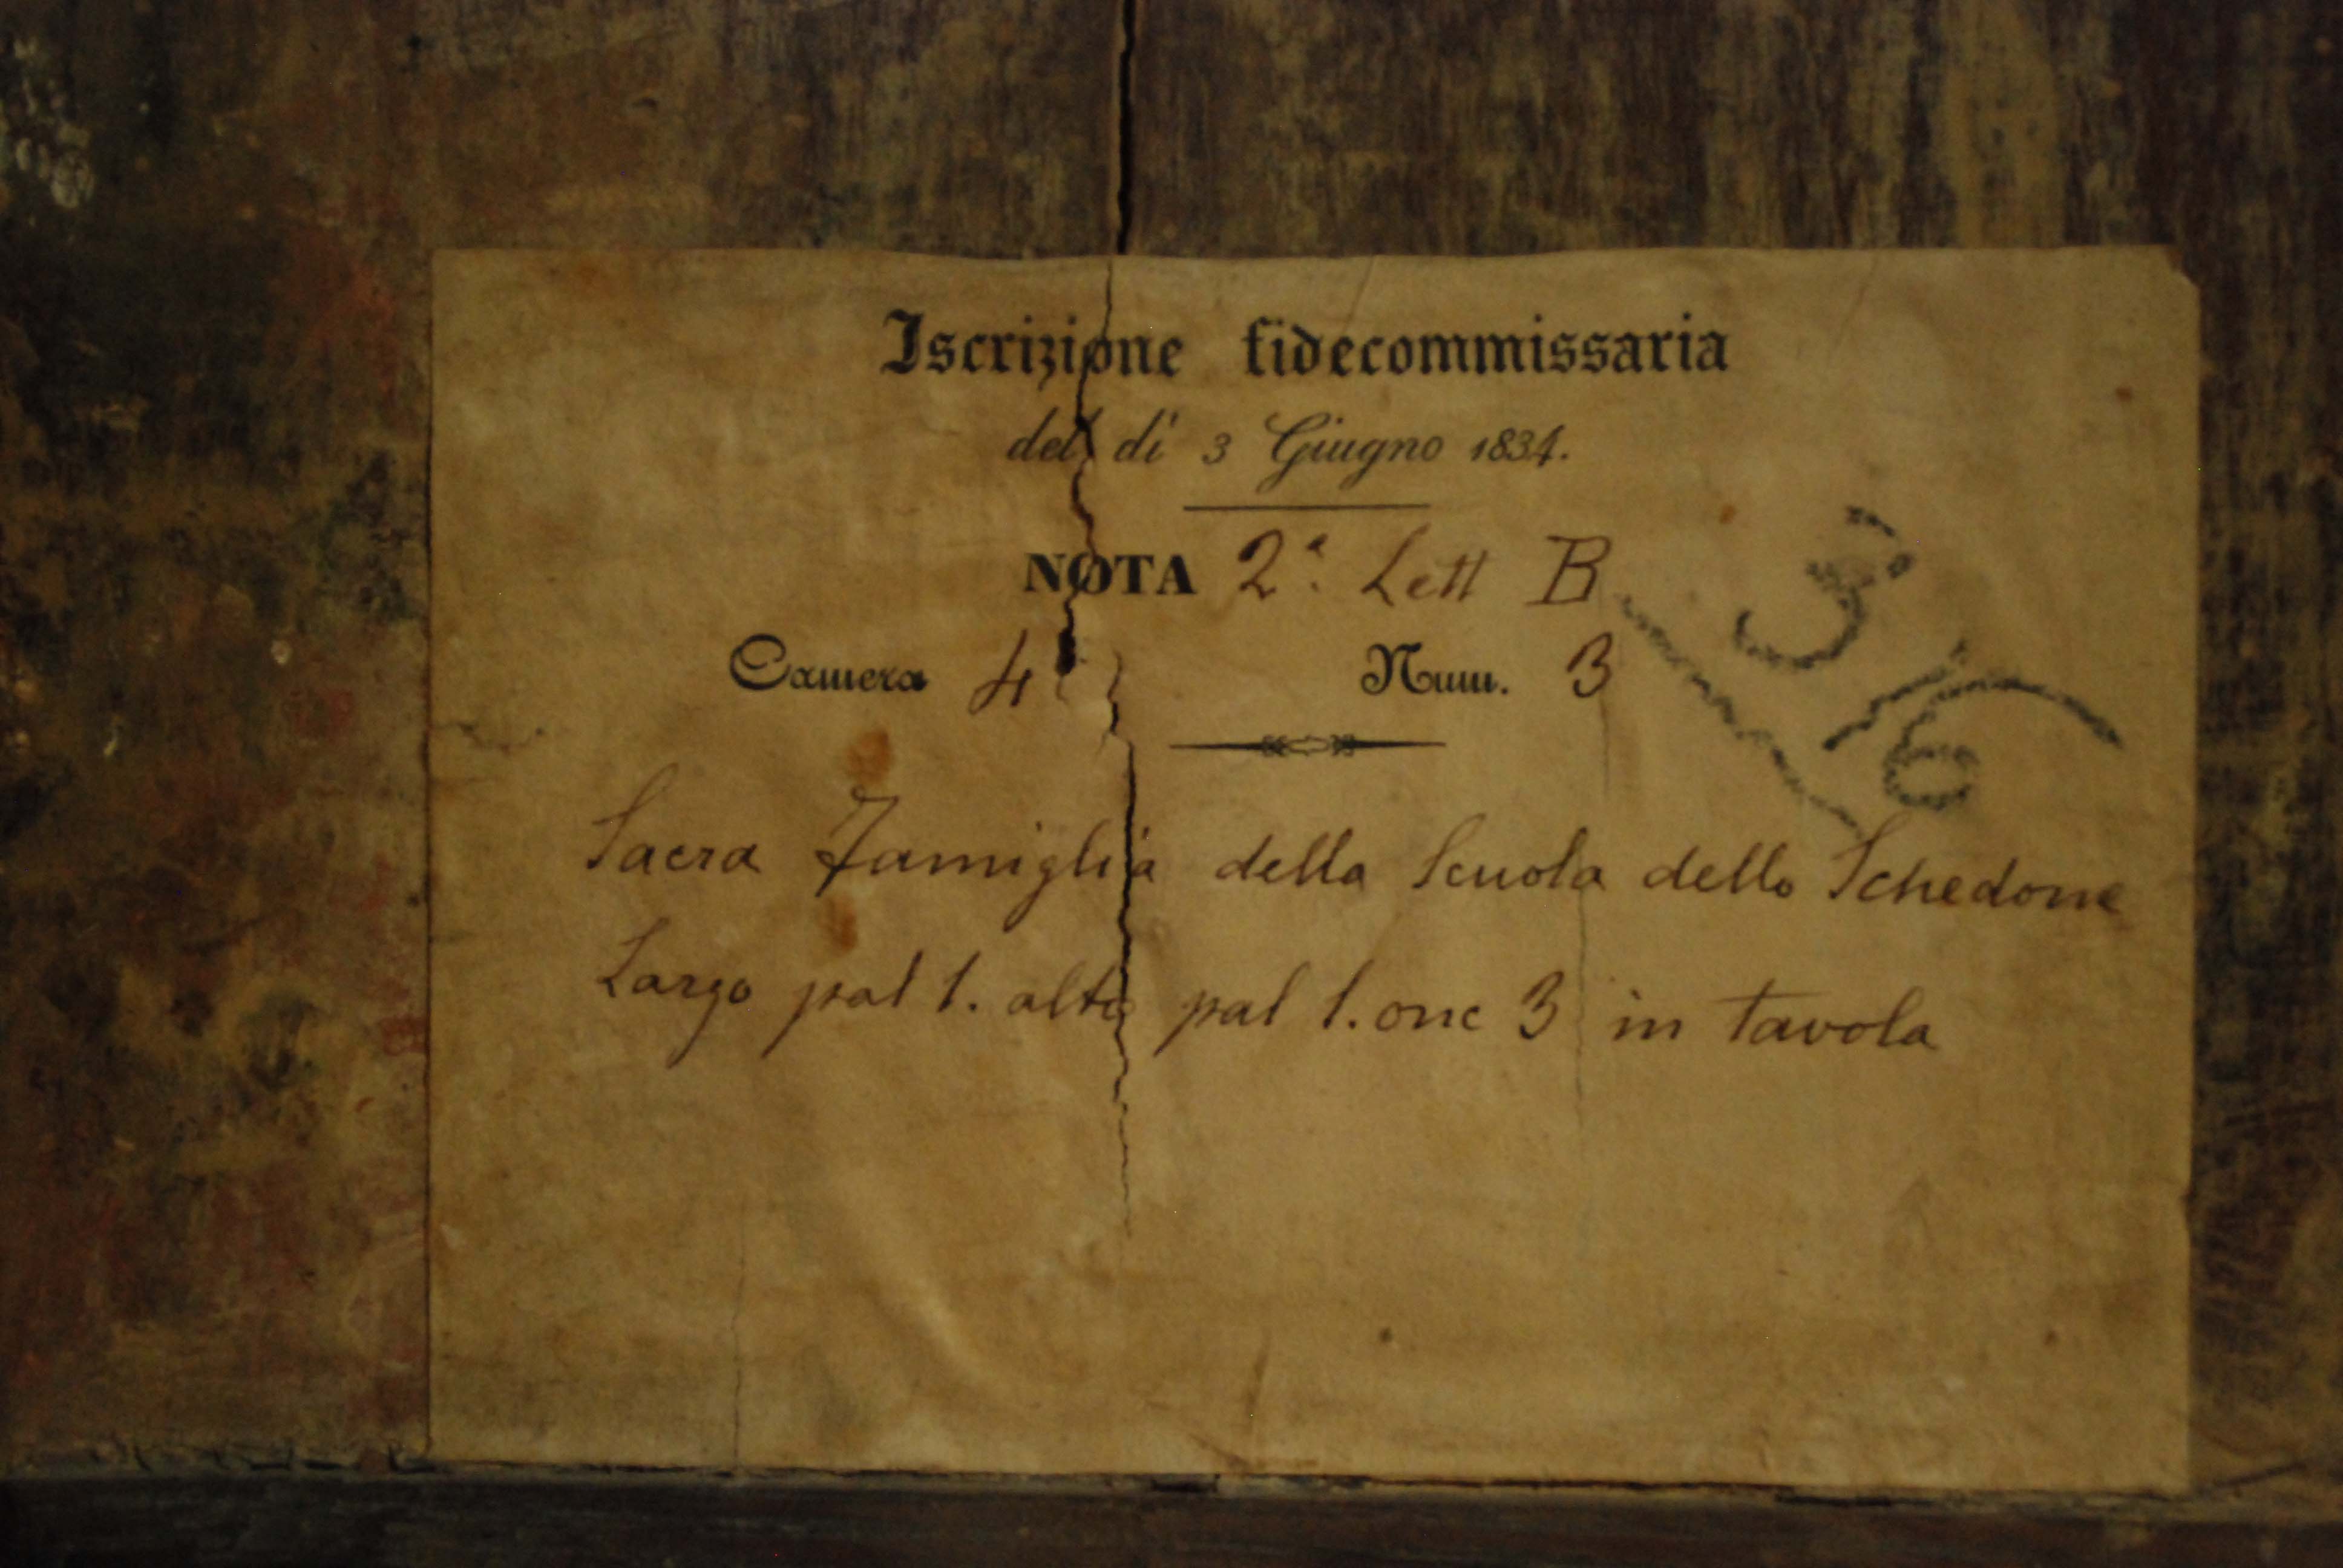 Iscrizione fidecommissaria
del dì 3 Giugno 1834.
NOTA 2ª Lett B
Camera 4ª Num. 3
36
Sacra Famiglia della Scuola dello Schedone
Largo pal 1. alto pal 1. onc 3 in tavola